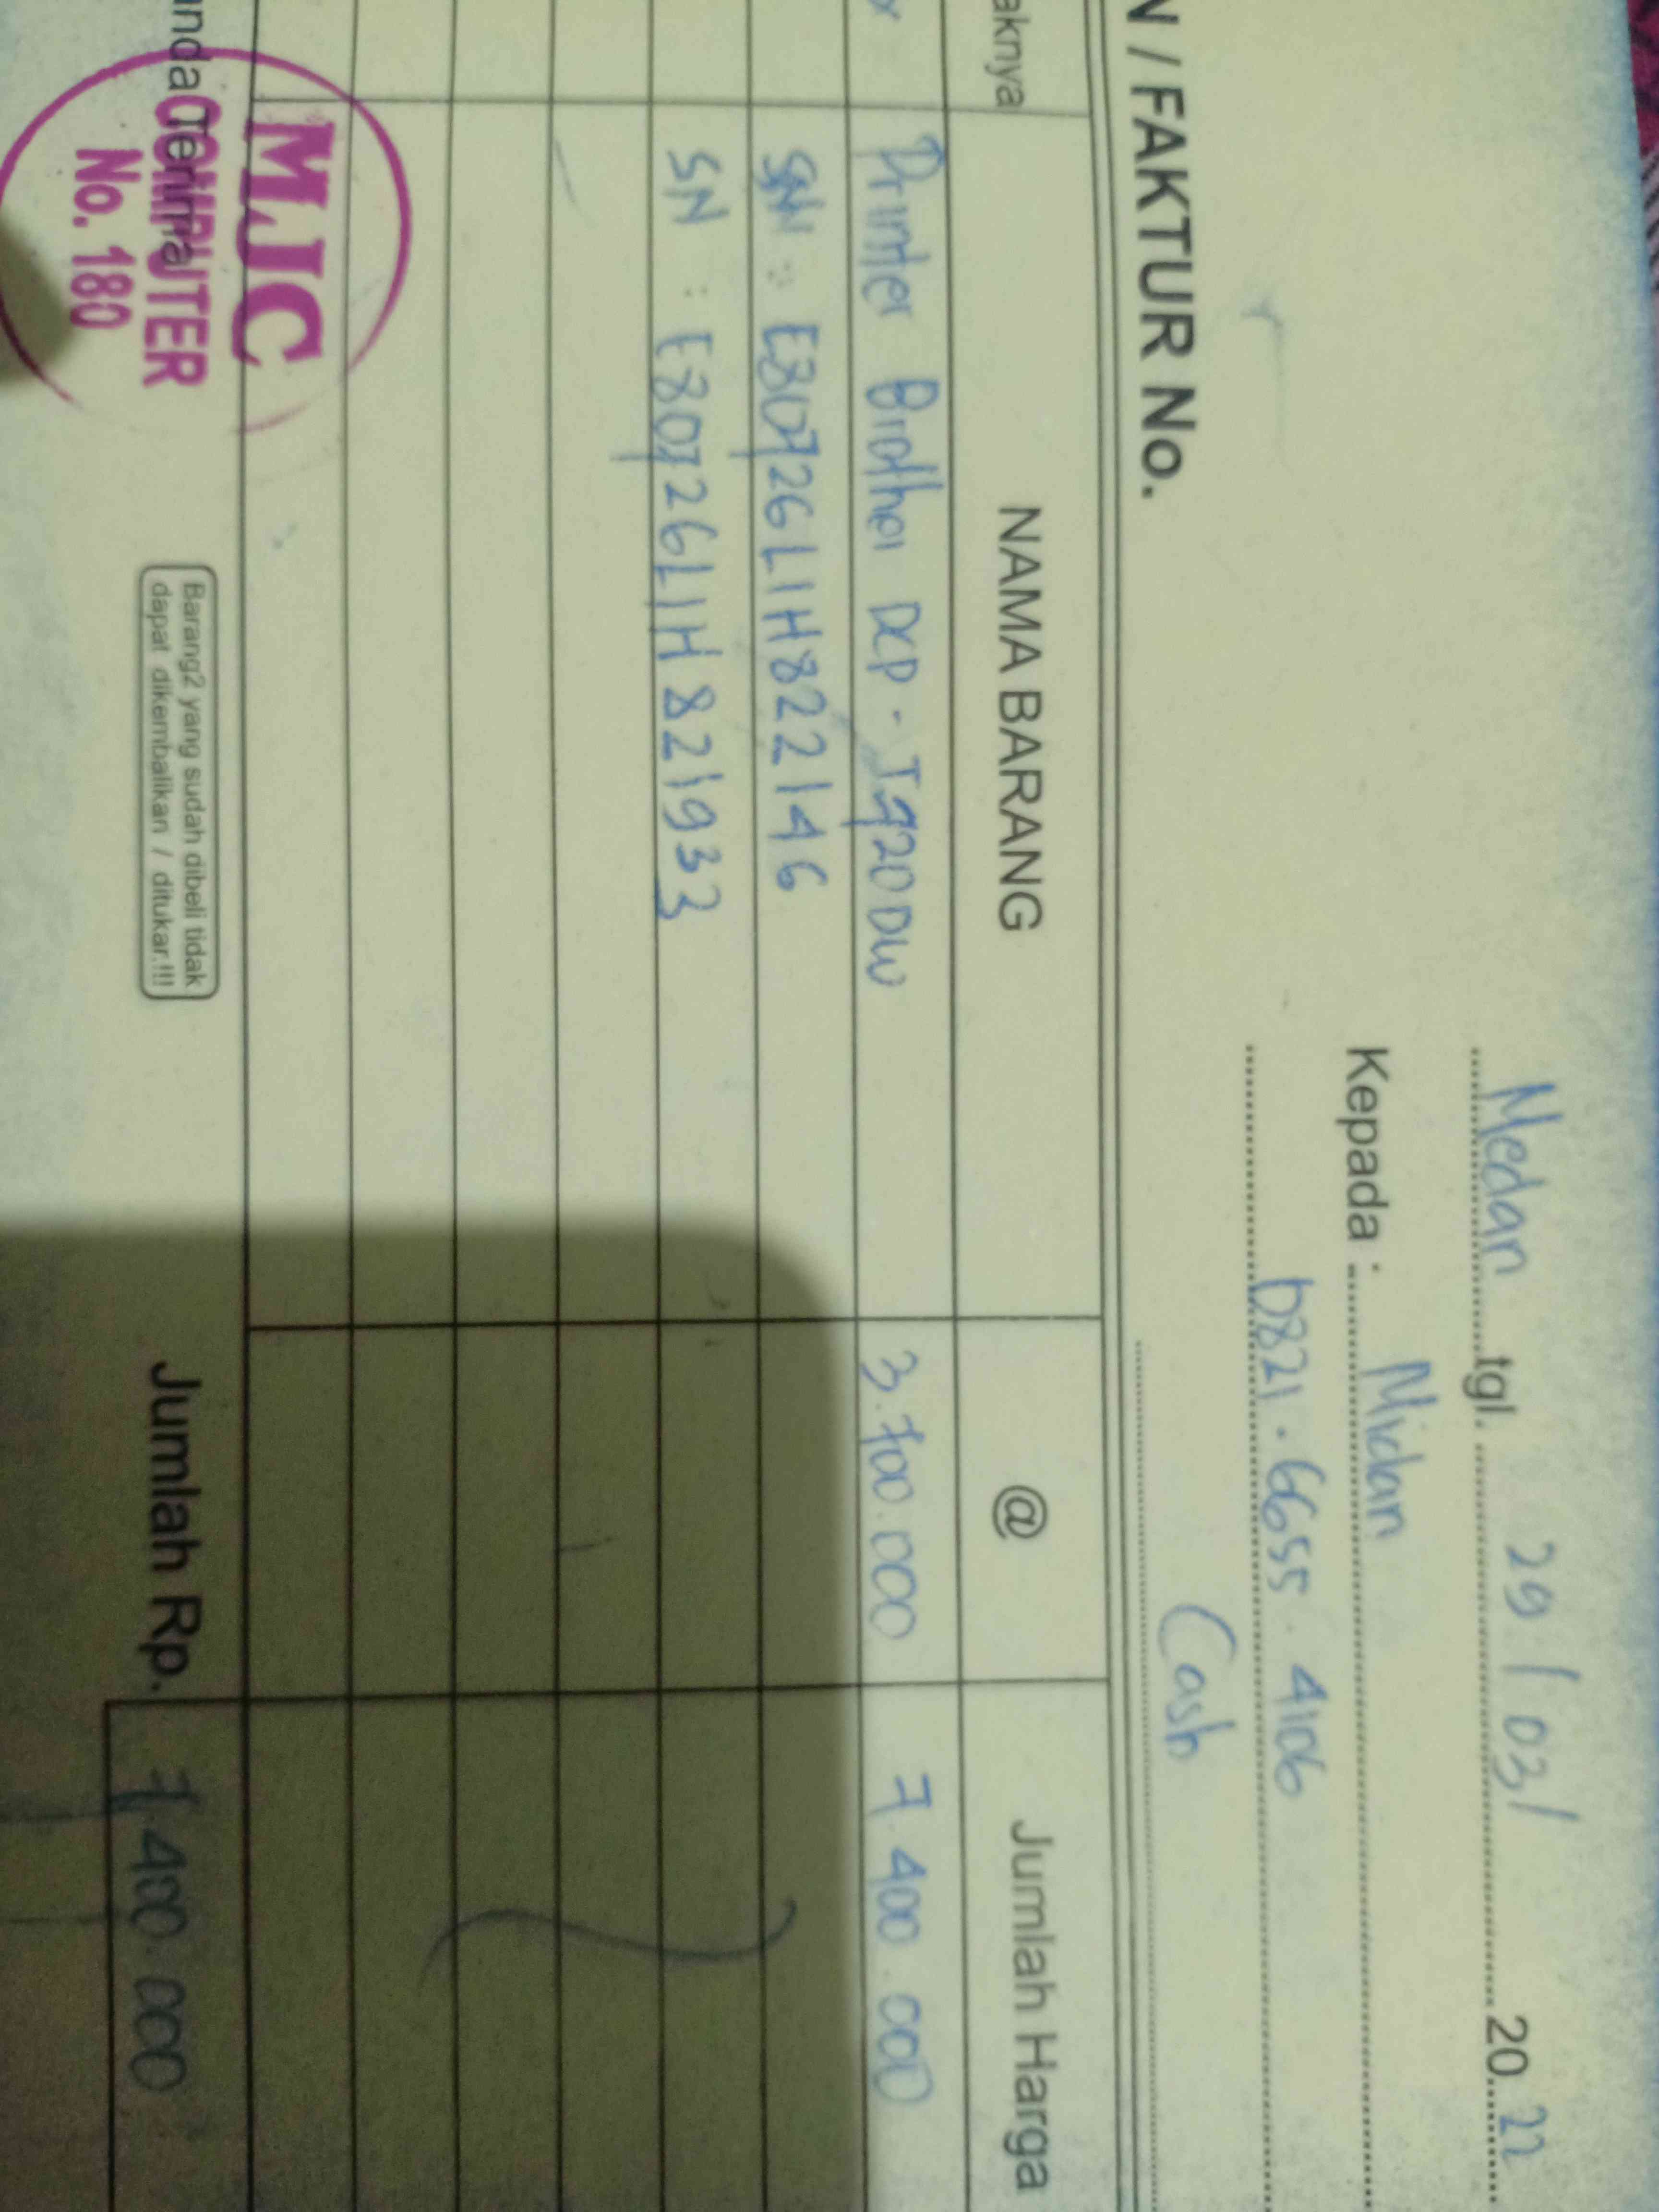 Medan tgl. 29/03/ 20 22
Kepada : Midan
0821.6655.4106
N / FAKTUR No. Cash
aknya NAMA BARANG @ Jumlah Harga
Printer Brother DCP-T920DW 3.700.000 7.400.000
SN : E80726L1H822146
SN : E80726L1H821933
MJC
COMPUTER
No. 180
anda Terima
Barang2 yang sudah dibeli tidak
dapat dikembalikan / ditukar.!!!
Jumlah Rp. 7.400.000